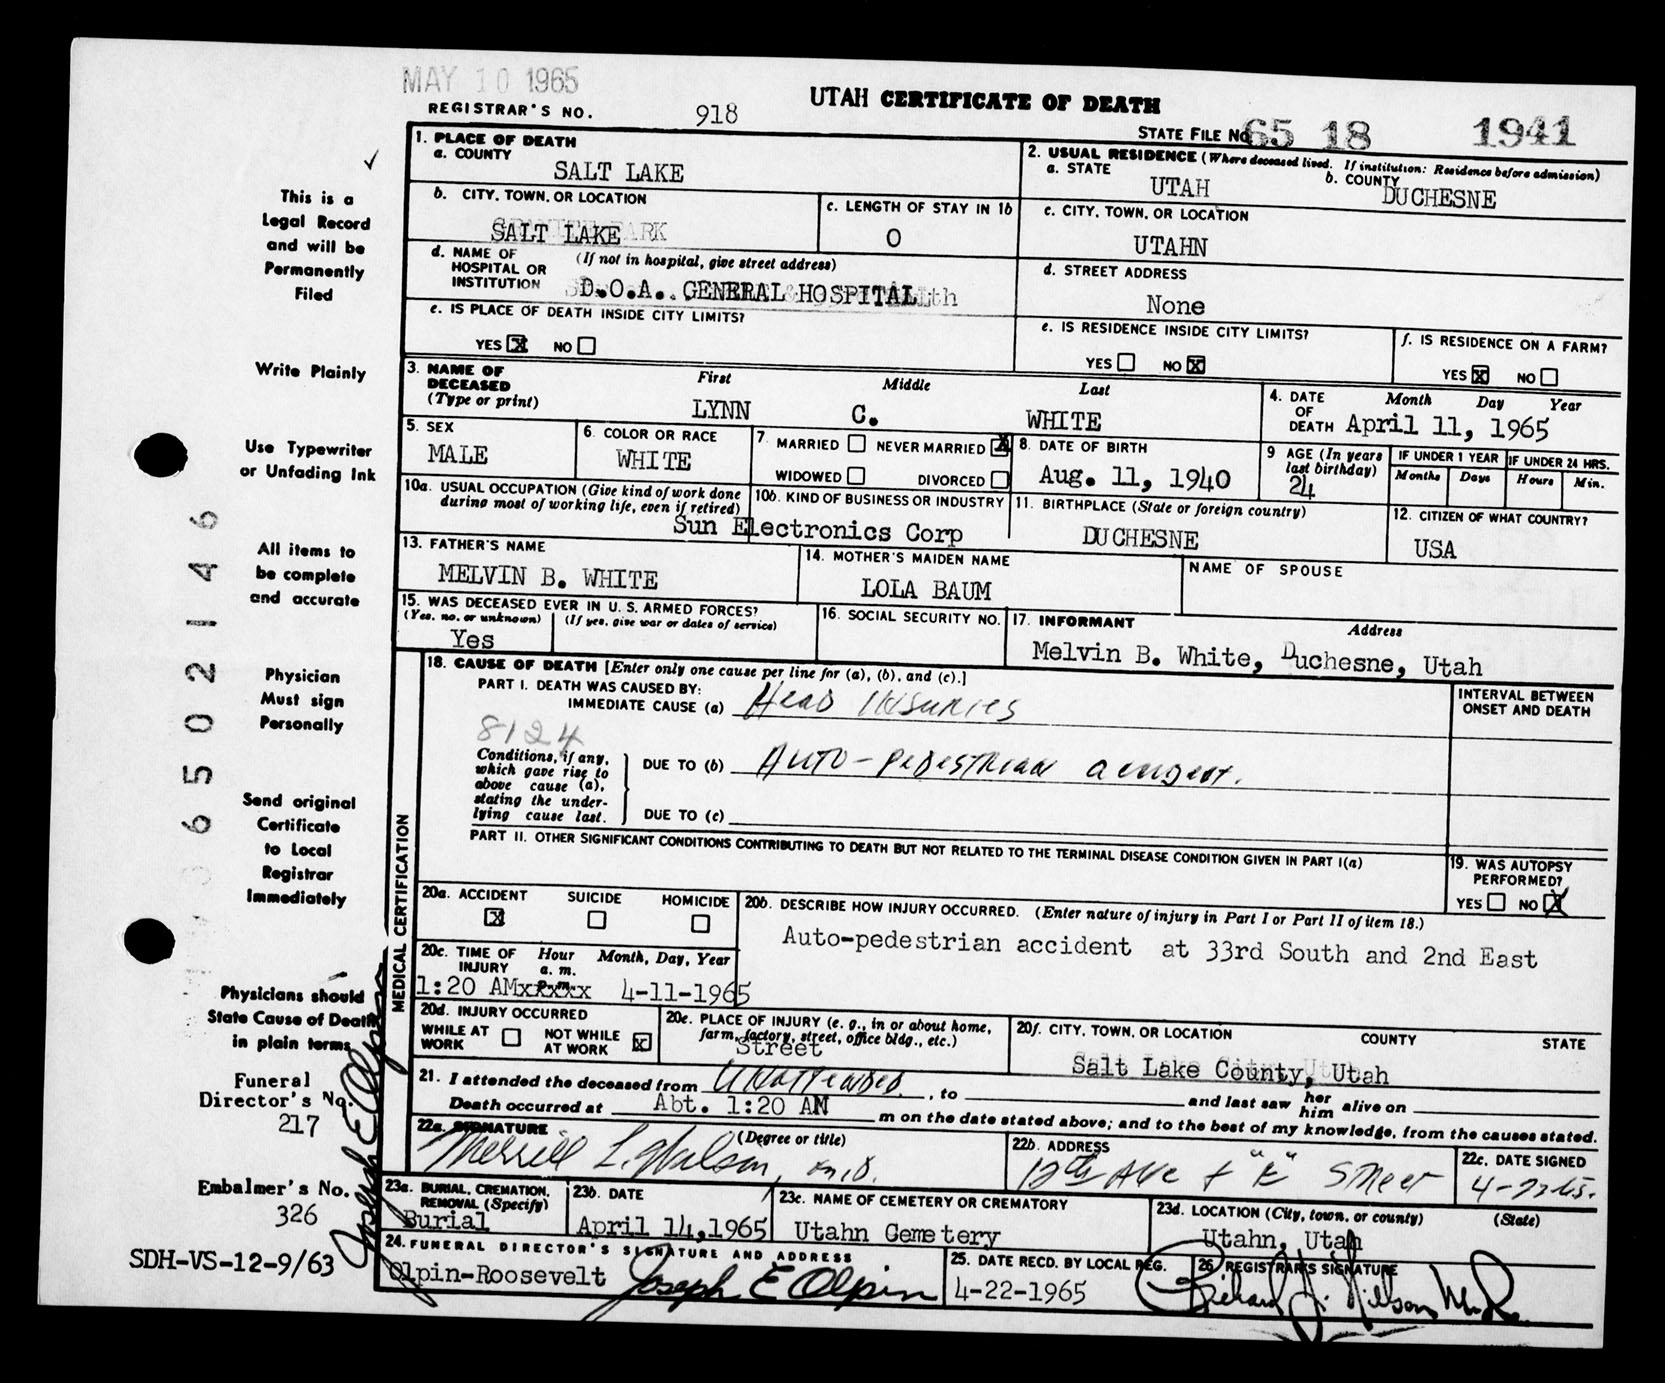 MAY 10 1965
UTAH CERTIFICATE OF DEATH
REGISTRAR'S NO. 918
STATE FILE NO. 65 18 1941
1. PLACE OF DEATH
a. COUNTY
SALT LAKE
2. USUAL RESIDENCE (Where deceased lived. If institution: Residence before admission)
a. STATE
UTAH
b. COUNTY
DUCHESNE
b. CITY, TOWN, OR LOCATION
SALT LAKE
c. LENGTH OF STAY IN 1b
0
c. CITY, TOWN, OR LOCATION
UTAHN
d. NAME OF HOSPITAL OR INSTITUTION
(If not in hospital, give street address)
D.O.A. GENERAL HOSPITAL
d. STREET ADDRESS
None
e. IS PLACE OF DEATH INSIDE CITY LIMITS?
YES X NO
e. IS RESIDENCE INSIDE CITY LIMITS?
YES NO X
f. IS RESIDENCE ON A FARM?
YES X NO
3. NAME OF DECEASED
(Type or print)
First Middle Last
LYNN C. WHITE
4. DATE OF DEATH
Month Day Year
April 11, 1965
5. SEX
MALE
6. COLOR OR RACE
WHITE
7. MARRIED NEVER MARRIED X
WIDOWED DIVORCED
8. DATE OF BIRTH
Aug. 11, 1940
9 AGE (In years last birthday)
24
IF UNDER 1 YEAR
Months Days
IF UNDER 24 HRS.
Hours Min.
10a. USUAL OCCUPATION (Give kind of work done during most of working life, even if retired)
10b. KIND OF BUSINESS OR INDUSTRY
Sun Electronics Corp
11. BIRTHPLACE (State or foreign country)
DUCHESNE
12. CITIZEN OF WHAT COUNTRY?
USA
13. FATHER'S NAME
MELVIN B. WHITE
14. MOTHER'S MAIDEN NAME
LOLA BAUM
NAME OF SPOUSE
15. WAS DECEASED EVER IN U. S. ARMED FORCES?
(Yes, no, or unknown) (If yes, give war or dates of service)
Yes
16. SOCIAL SECURITY NO.
17. INFORMANT Address
Melvin B. White, Duchesne, Utah
18. CAUSE OF DEATH [Enter only one cause per line for (a), (b), and (c).]
PART I. DEATH WAS CAUSED BY:
IMMEDIATE CAUSE (a) Head Injuries
INTERVAL BETWEEN ONSET AND DEATH
8124
Conditions, if any, which gave rise to above cause (a), stating the underlying cause last.
DUE TO (b) Auto-Pedestrian accident.
DUE TO (c)
PART II. OTHER SIGNIFICANT CONDITIONS CONTRIBUTING TO DEATH BUT NOT RELATED TO THE TERMINAL DISEASE CONDITION GIVEN IN PART I(a)
19. WAS AUTOPSY PERFORMED?
YES NO X
MEDICAL CERTIFICATION
20a. ACCIDENT SUICIDE HOMICIDE
X
20b. DESCRIBE HOW INJURY OCCURRED. (Enter nature of injury in Part I or Part II of item 18.)
Auto-pedestrian accident at 33rd South and 2nd East
20c. TIME OF INJURY
Hour a. m. p. m. Month, Day, Year
1:20 AMxxxxx 4-11-1965
20d. INJURY OCCURRED
WHILE AT WORK NOT WHILE AT WORK X
20e. PLACE OF INJURY (e. g., in or about home, farm, factory, street, office bldg., etc.)
Street
20f. CITY, TOWN, OR LOCATION COUNTY STATE
Salt Lake County, Utah
21. I attended the deceased from Unattended, to and last saw her him alive on
Death occurred at Abt. 1:20 AM m on the date stated above; and to the best of my knowledge, from the causes stated.
22a. SIGNATURE (Degree or title)
Merrill L. Wilson, M.D.
22b. ADDRESS
12th Ave + "E" Street
22c. DATE SIGNED
23a. BURIAL, CREMATION, REMOVAL (Specify)
Burial
23b. DATE
April 14, 1965
23c. NAME OF CEMETERY OR CREMATORY
Utahn Cemetery
23d. LOCATION (City, town, or county) (State)
Utahn, Utah
24. FUNERAL DIRECTOR'S SIGNATURE AND ADDRESS
Olpin-Roosevelt Joseph E Olpin
25. DATE RECD. BY LOCAL REG.
4-22-1965
26 REGISTRAR'S SIGNATURE
This is a
Legal Record
and will be
Permanently
Filed
Write Plainly
Use Typewriter
or Unfading Ink
All items to
be complete
and accurate
Physician
Must sign
Personally
Send original
Certificate
to Local
Registrar
Immediately
Physicians should
State Cause of Death
in plain terms
Funeral
Director's No.
217
Embalmer's No.
326
SDH-VS-12-9/63
Joseph E Olpin
36502146